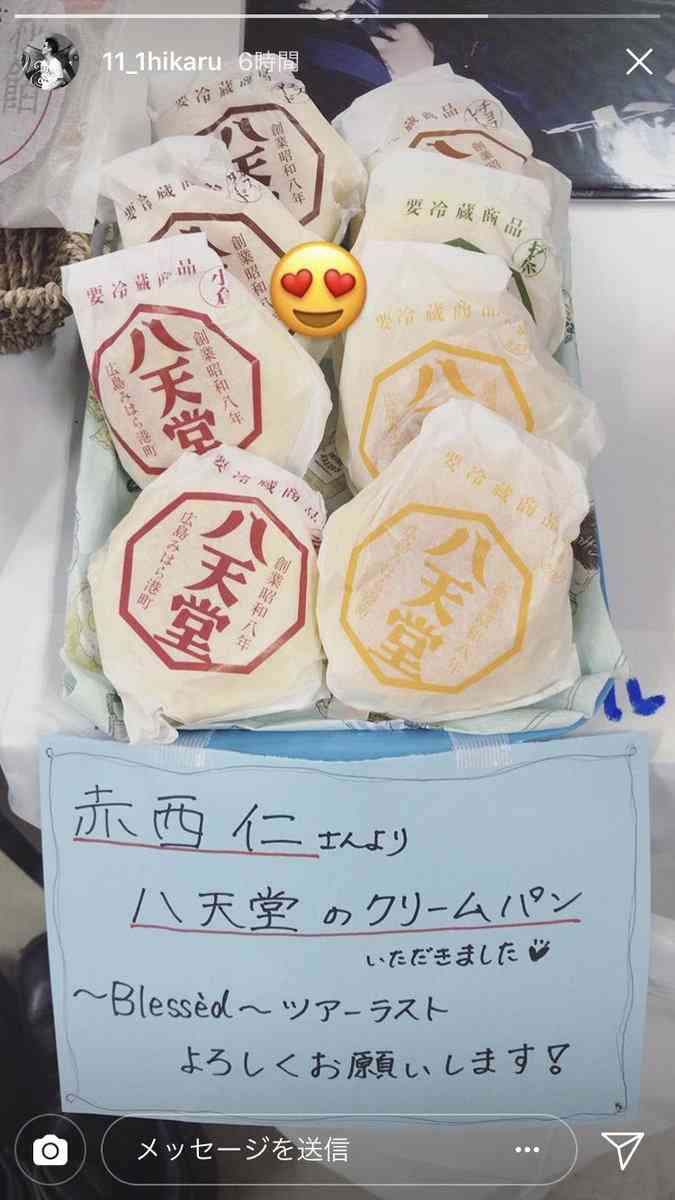 11_1hikaru 6時間
要冷蔵商品
八天
創業昭和八年
要冷蔵商品
創業昭和
要冷蔵商品
要冷蔵商品
小倉
八天堂
創業昭和八年
広島みはら港町
要冷蔵商品
八
要冷蔵商品
八天堂
創業昭和八年
広島みはら港町
要冷蔵商品
八天堂
創業昭和八年
赤西仁さんより
八天堂のクリームパン
いただきました
〜Blessèd〜ツアーラスト
よろしくお願いします!
メッセージを送信